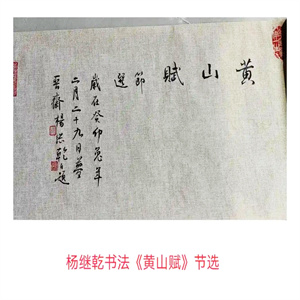 黄山賦
節選
歲在癸卯兔年
二月二十九日
齋楊继乾題
杨继乾书法《黄山赋》节选